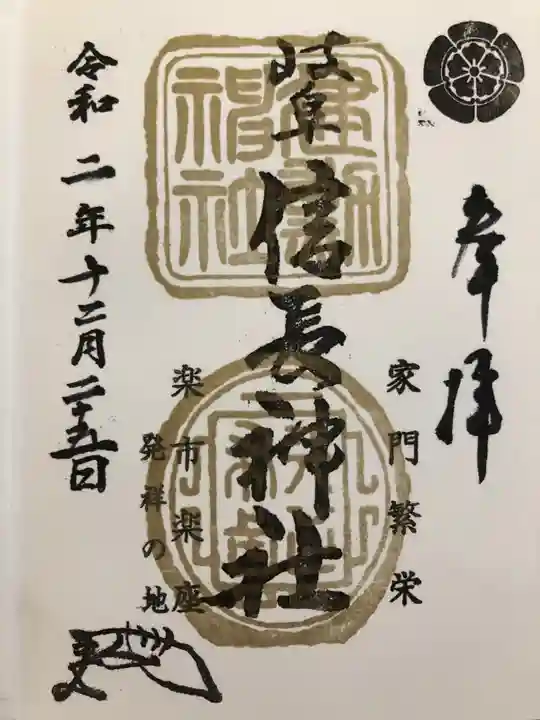 奉拝
家門繁栄
岐阜 信長神社
建勲神社
楽市楽座
発祥の地
令和二年十二月二十五日